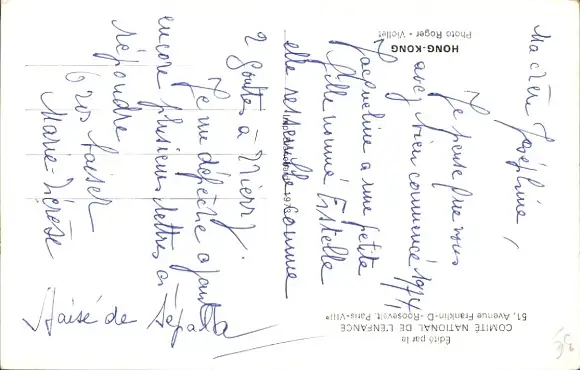 Ma chère Joséphine,
Je pense que vous
avez bien commencé 1974
Jacqueline a une petite
fille nommé Estelle
elle ressemble comme
2 gouttes à Thierry.
Je me dépêche ayant
encore plusieurs lettres à
répondre
Gros baiser
Marie-Thérèse
HONG-KONG
Photo Roger-Viollet
Édité par le
COMITÉ NATIONAL DE L'ENFANCE
51, Avenue Franklin-D.-Roosevelt, Paris-VIIIe